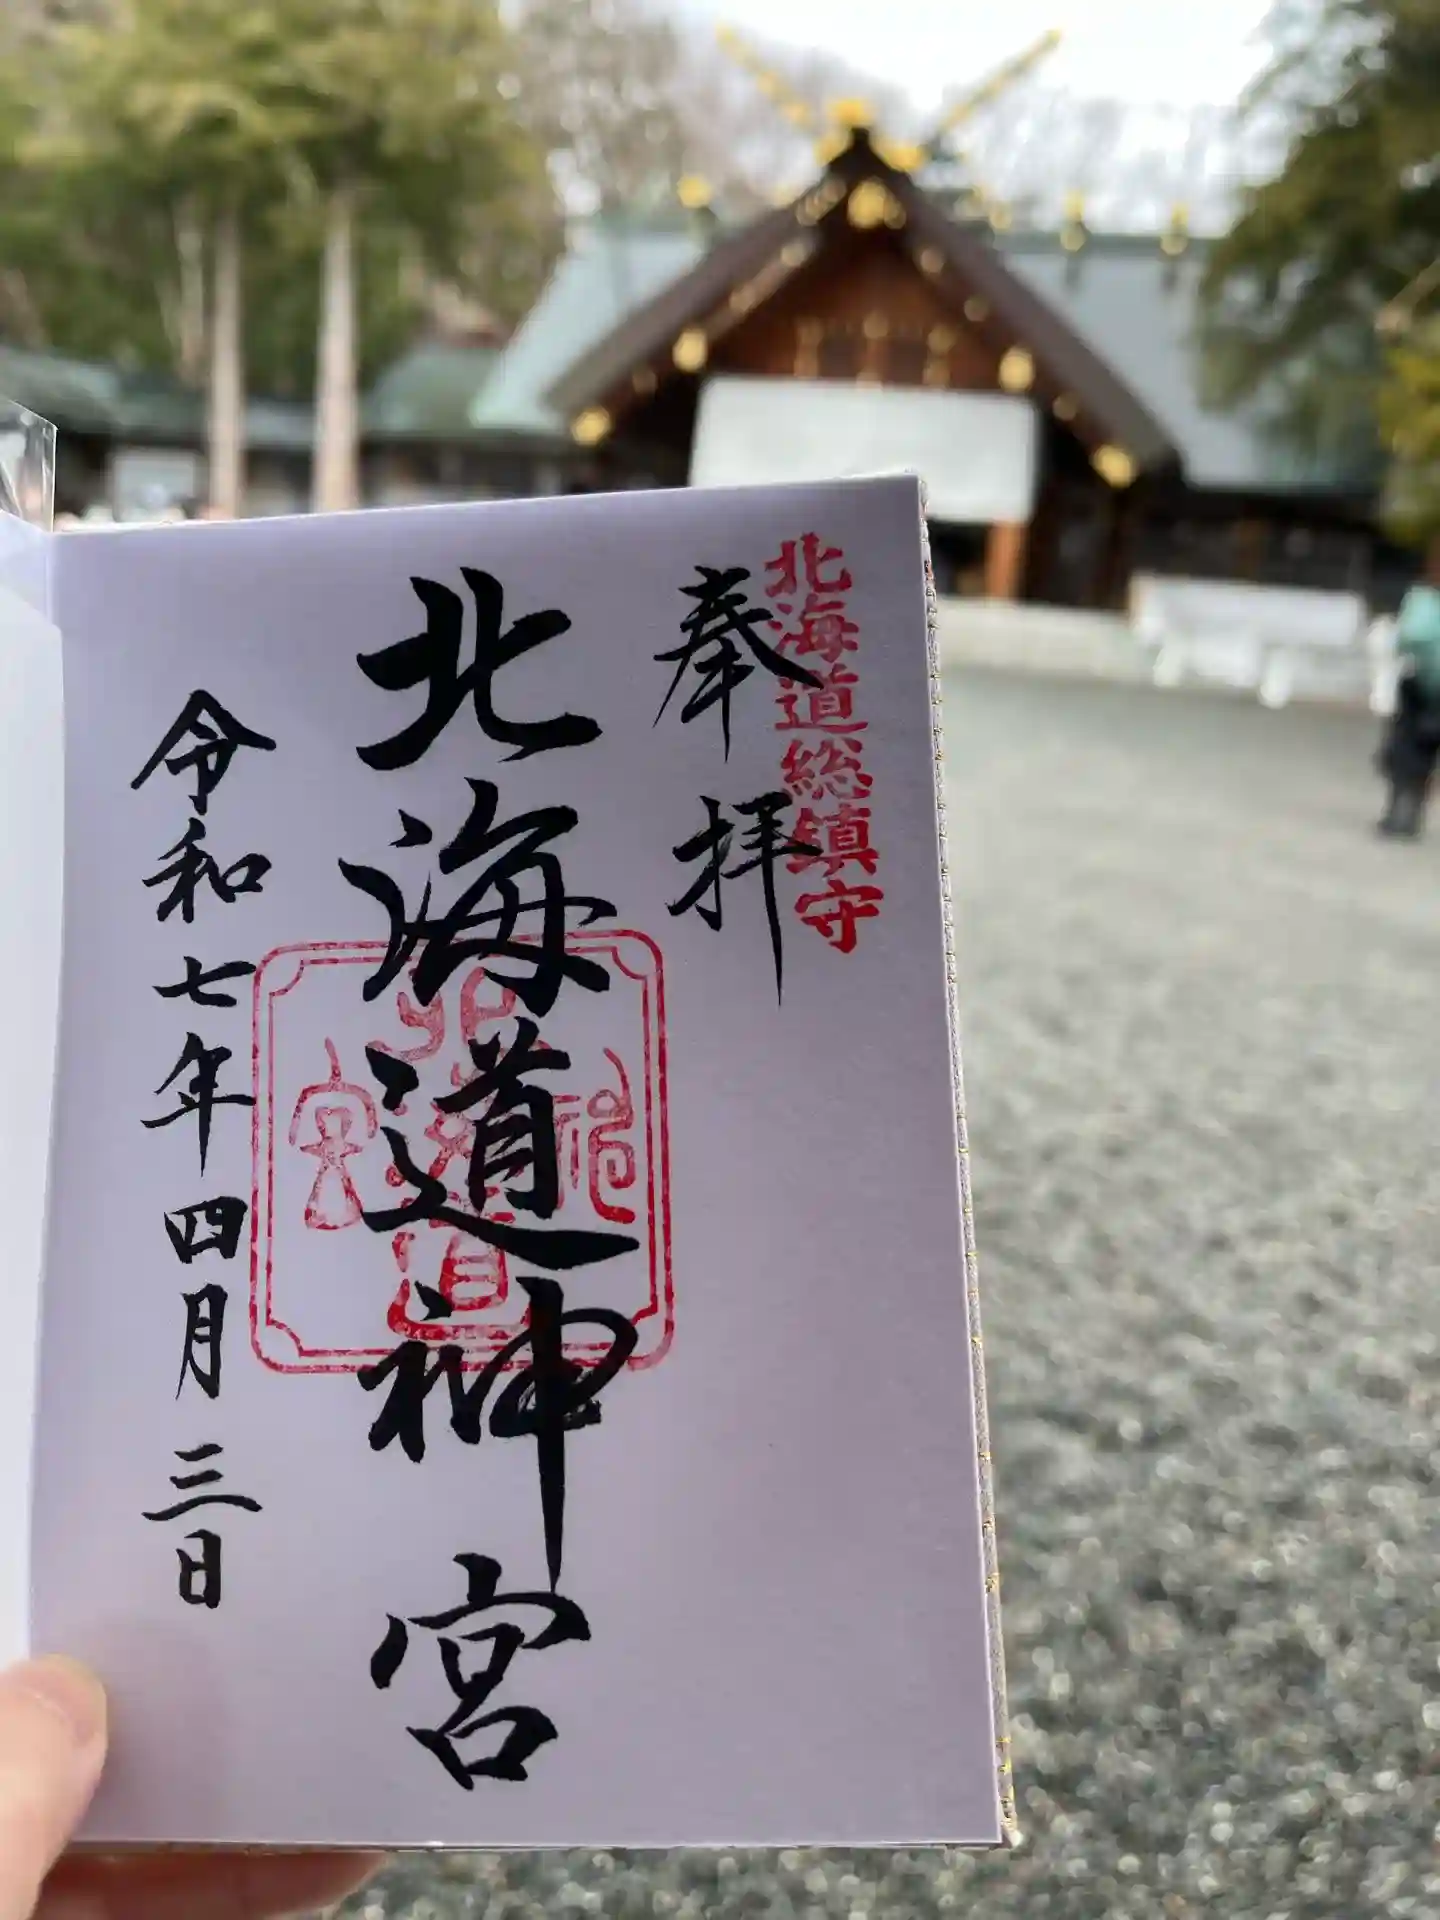 北海道総鎮守
奉拝
北海道神宮
令和七年四月三日